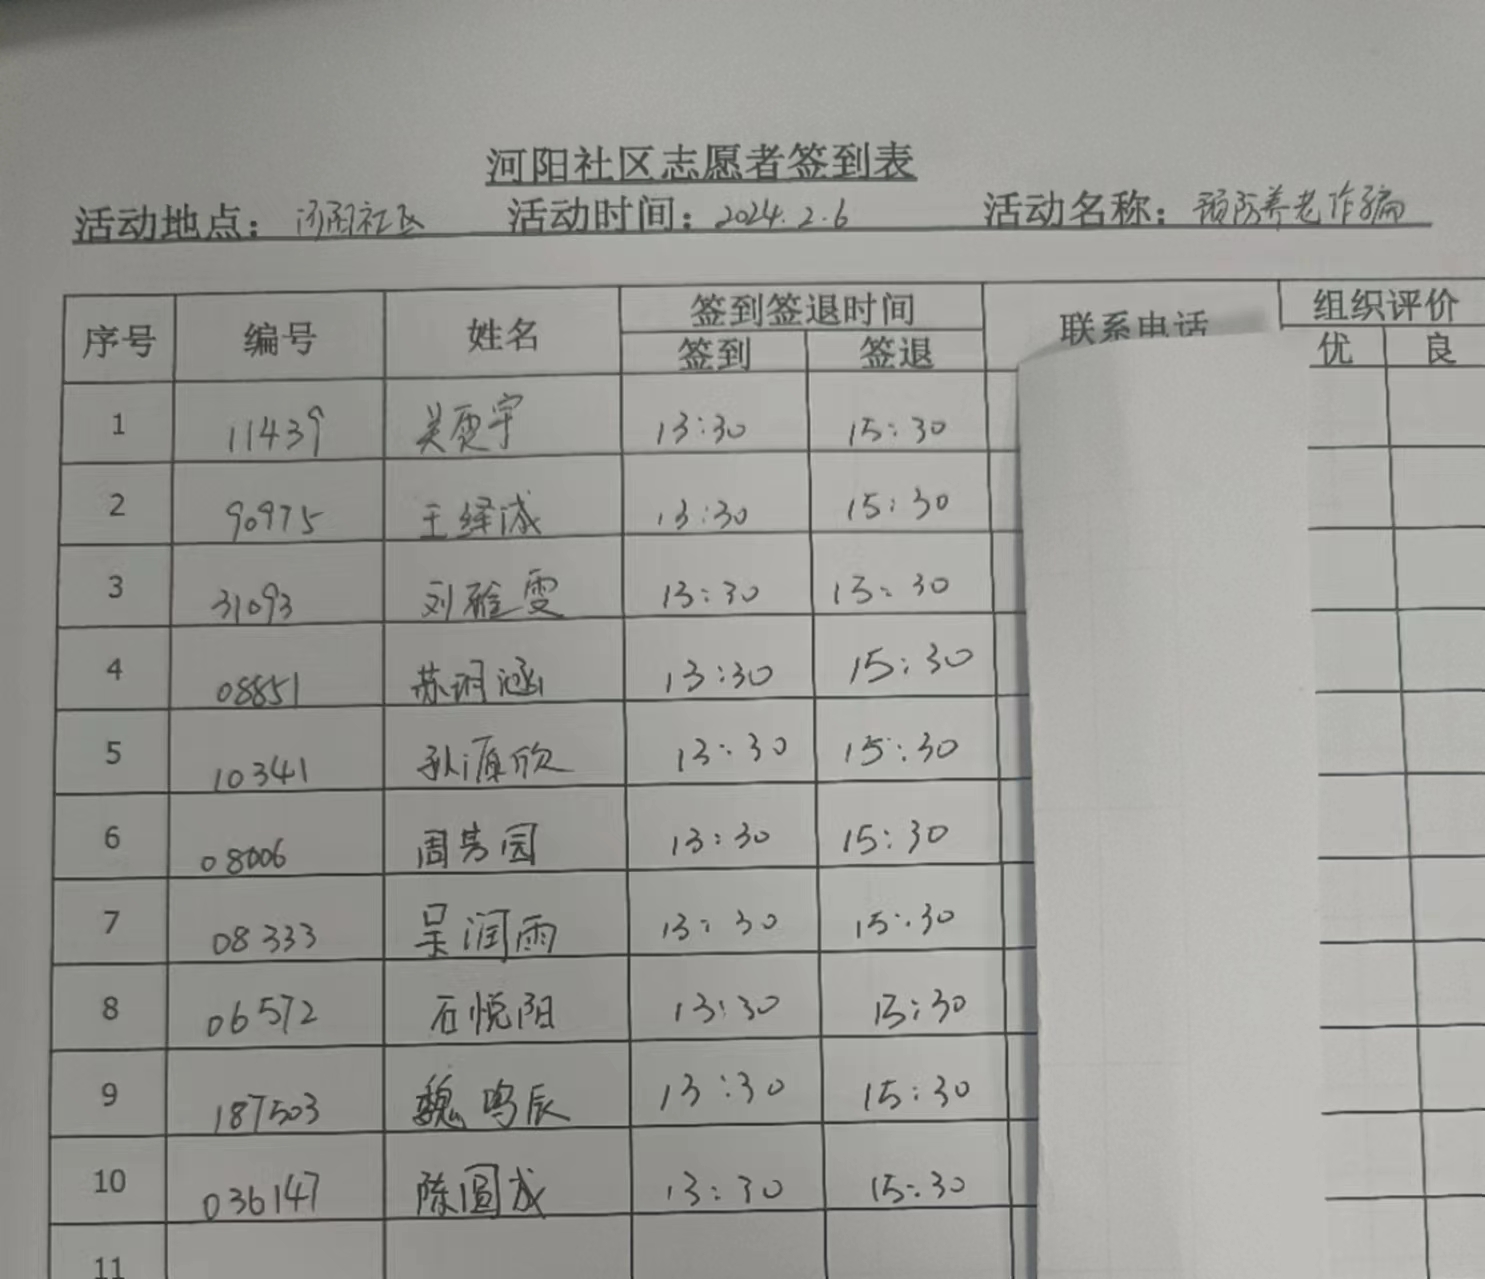 河阳社区志愿者签到表
活动地点：河阳社区 活动时间：2024.2.6 活动名称：预防养老诈骗
序号 编号 姓名 签到签退时间 联系电话 组织评价
签到 签退 优 良
1 11439 吴雯宇 13:30 15:30
2 90975 王绎诚 13:30 15:30
3 31093 刘雅雯 13:30 15:30
4 08851 苏诩涵 13:30 15:30
5 10341 孙源欣 13:30 15:30
6 08006 周芳园 13:30 15:30
7 08333 吴润雨 13:30 15:30
8 06572 石悦阳 13:30 15:30
9 187503 魏鸣辰 13:30 15:30
10 036147 陈圆成 13:30 15:30
11